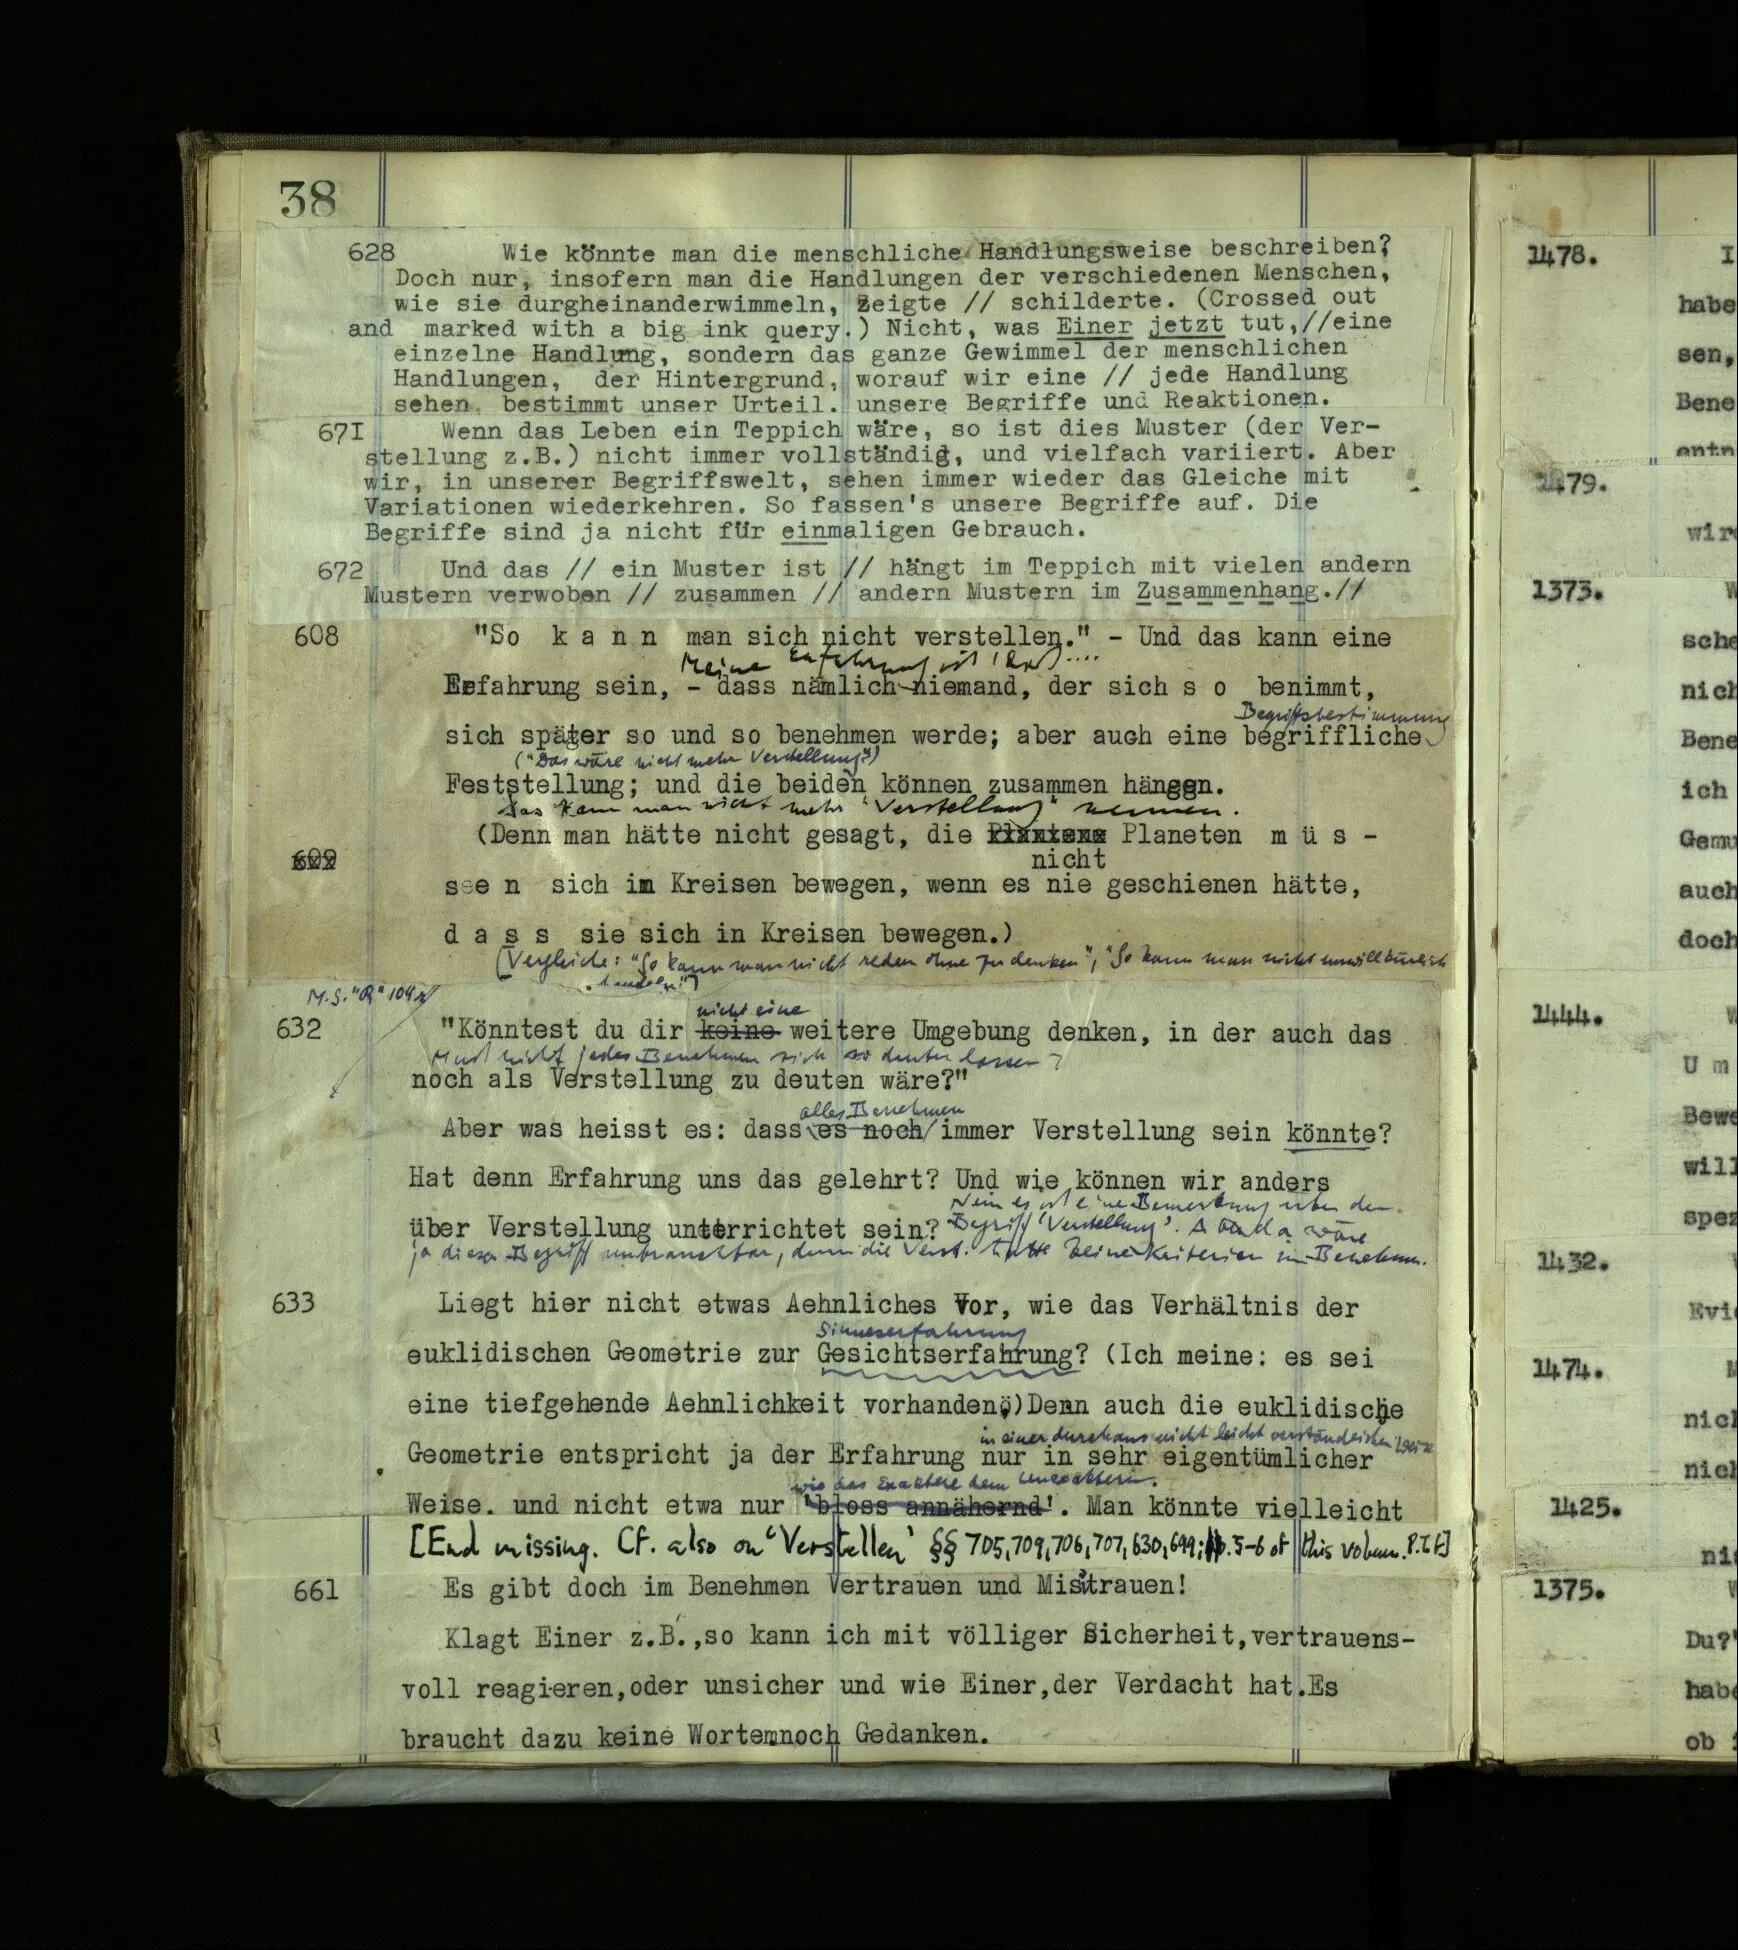 38
628 Wie könnte man die menschliche Handlungsweise beschreiben?
Doch nur, insofern man die Handlungen der verschiedenen Menschen,
wie sie durgheinanderwimmeln, zeigte // schilderte. (Crossed out
and marked with a big ink query.) Nicht, was Einer jetzt tut,//eine
einzelne Handlung, sondern das ganze Gewimmel der menschlichen
Handlungen, der Hintergrund, worauf wir eine // jede Handlung
sehen, bestimmt unser Urteil. unsere Begriffe und Reaktionen.
67I Wenn das Leben ein Teppich wäre, so ist dies Muster (der Ver-
stellung z.B.) nicht immer vollständig, und vielfach variiert. Aber
wir, in unserer Begriffswelt, sehen immer wieder das Gleiche mit
Variationen wiederkehren. So fassen's unsere Begriffe auf. Die
Begriffe sind ja nicht für einmaligen Gebrauch.
672 Und das // ein Muster ist // hängt im Teppich mit vielen andern
Mustern verwoben // zusammen // andern Mustern im Zusammenhang.//
608 "So k a n n man sich nicht verstellen." - Und das kann eine
Meine Erfahrung ist
Erfahrung sein, - dass nämlich niemand, der sich s o benimmt,
Begriffsbestimmung
sich später so und so benehmen werde; aber auch eine begriffliche
("Das wäre nicht mehr Verstellung")
Feststellung; und die beiden können zusammen hängen.
Das kann man nicht mehr "Verstellung" nennen.
(Denn man hätte nicht gesagt, die Planeten m ü s -
609
nicht
s e n sich in Kreisen bewegen, wenn es nie geschienen hätte,
d a s s sie sich in Kreisen bewegen.)
[Vergleiche: "So kann man nicht reden ohne zu denken", "So kann man nicht unwillkürlich
handeln"]
M.S. "R" 104
nicht eine
632 "Könntest du dir keine weitere Umgebung denken, in der auch das
Muß nicht jedes Benehmen sich so deuten lassen?
noch als Verstellung zu deuten wäre?"
alles Benehmen
Aber was heisst es: dass es noch immer Verstellung sein könnte?
Hat denn Erfahrung uns das gelehrt? Und wie können wir anders
Nein es ist eine Bemerkung über den
über Verstellung unterrichtet sein? Begriff 'Verstellung'. Aber da wäre
ja dieser Begriff unbrauchbar, denn die Verst. hätte keine Kriterien im Benehmen.
633 Liegt hier nicht etwas Aehnliches Vor, wie das Verhältnis der
Sinneserfahrung
euklidischen Geometrie zur Gesichtserfahrung? (Ich meine: es sei
eine tiefgehende Aehnlichkeit vorhanden.)Denn auch die euklidische
in einer durchaus nicht leicht verständlichen Weise
Geometrie entspricht ja der Erfahrung nur in sehr eigentümlicher
wie das Exaktere dem Unexakteren.
Weise. und nicht etwa nur 'bloss annähernd'. Man könnte vielleicht
[End missing. Cf. also on 'Verstellen' §§ 705, 709, 706, 707, 630, 699; pp. 5-6 of this volume. P.T.G]
661 Es gibt doch im Benehmen Vertrauen und Misstrauen!
Klagt Einer z.B.,so kann ich mit völliger Sicherheit,vertrauens-
voll reagieren,oder unsicher und wie Einer,der Verdacht hat.Es
braucht dazu keine Wortemnoch Gedanken.
1478. I
habe
sen,
Bene
1479.
wird
1373. W
sche
nich
Bene
ich
Gemu
auch
doch
1444. W
U m
Bewe
will
spez
1432.
Evi
1474. M
nich
nich
1425.
ni
1375. W
Du?"
habe
ob